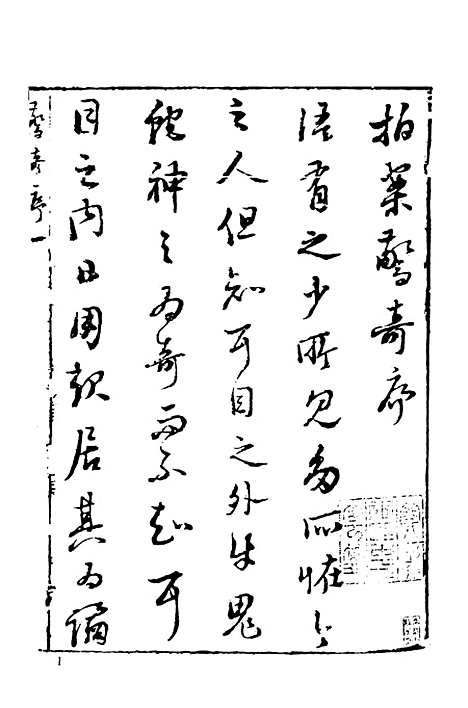 拍案驚奇序
語有之少所見多所怪今
之人但知耳目之外牛鬼
蛇神之為奇而不知耳
目之内日用起居其為譎
驚奇序一
1